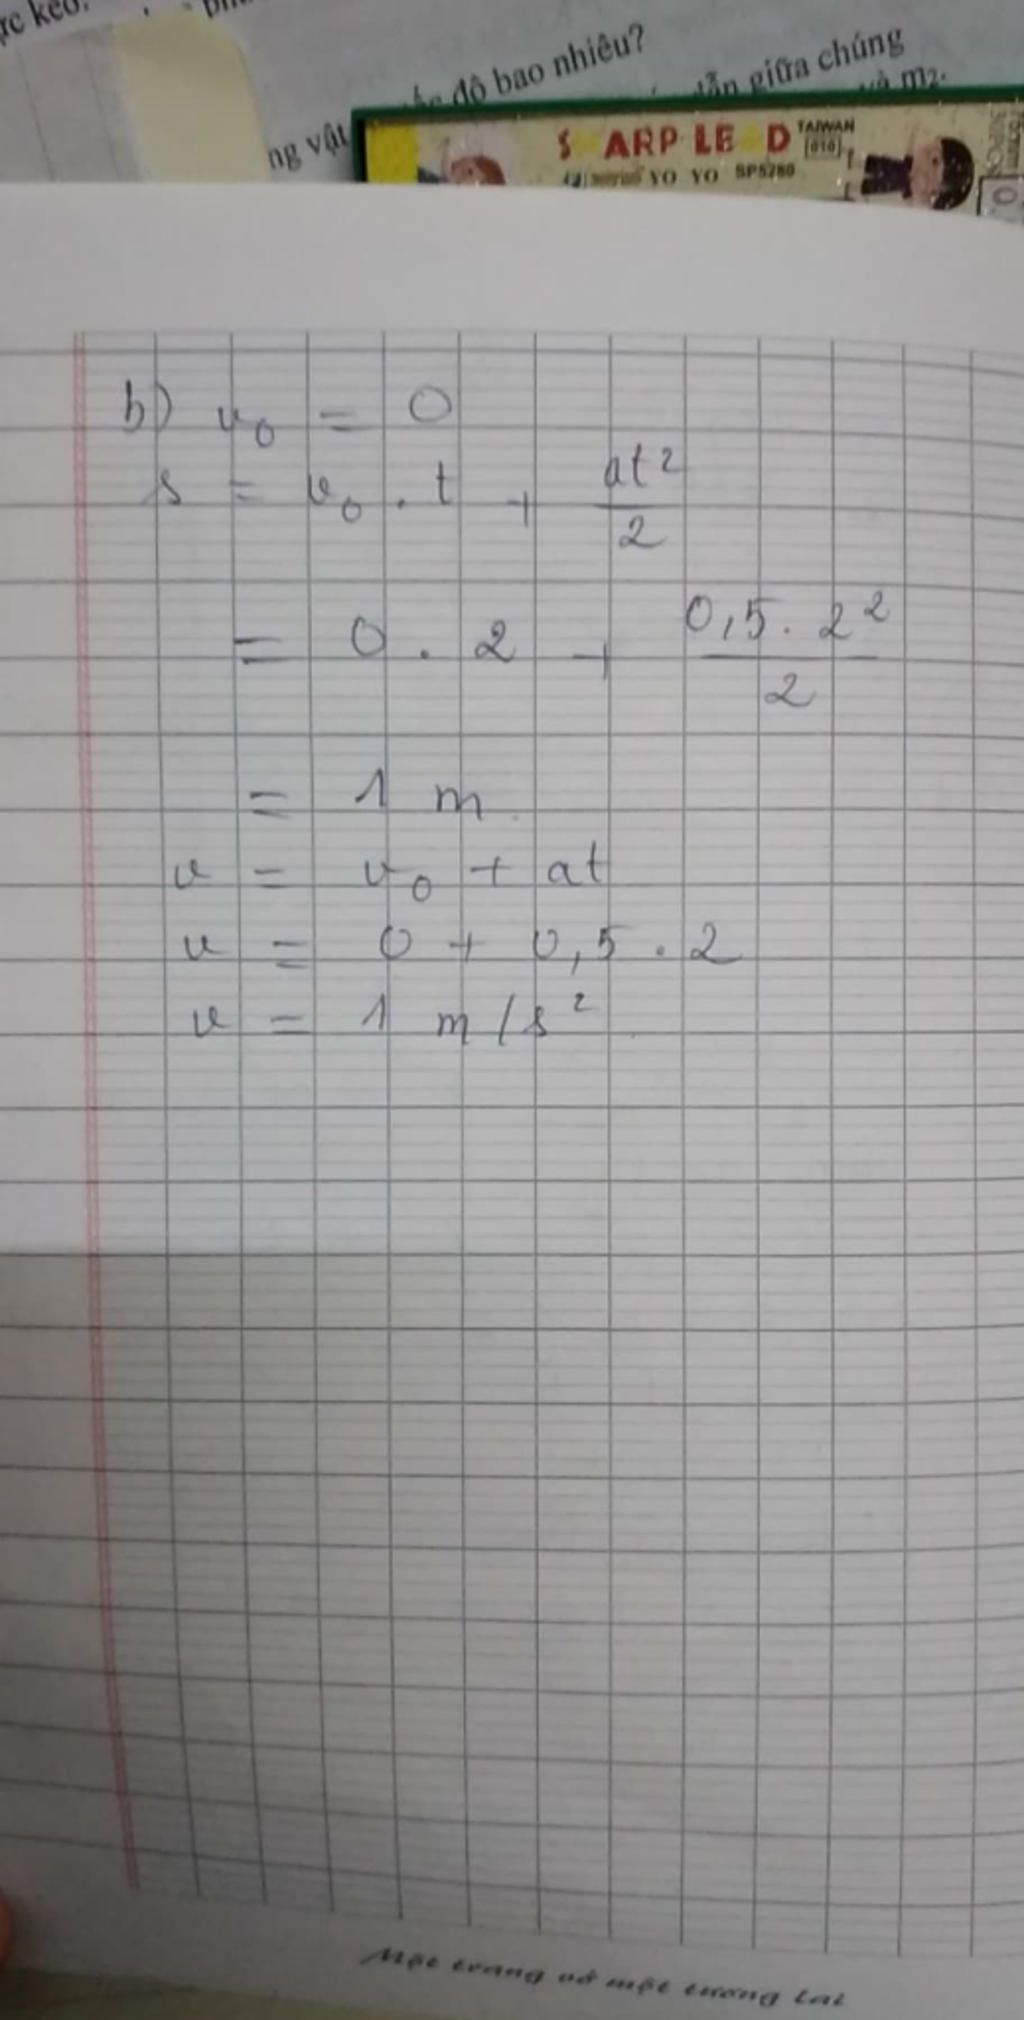 ực kéo.
độ bao nhiêu?
dẫn giữa chúng
và m₂.
ng vật
S ARP LE D TAIWAN
010
YO YO SP5280
b) v₀ = 0
s = v₀ . t + at²/2
= 0 . 2 + 0,5 . 2²/2
= 1 m
v = v₀ + at
v = 0 + 0,5 . 2
v = 1 m/s²
Một trang vở một tương lai